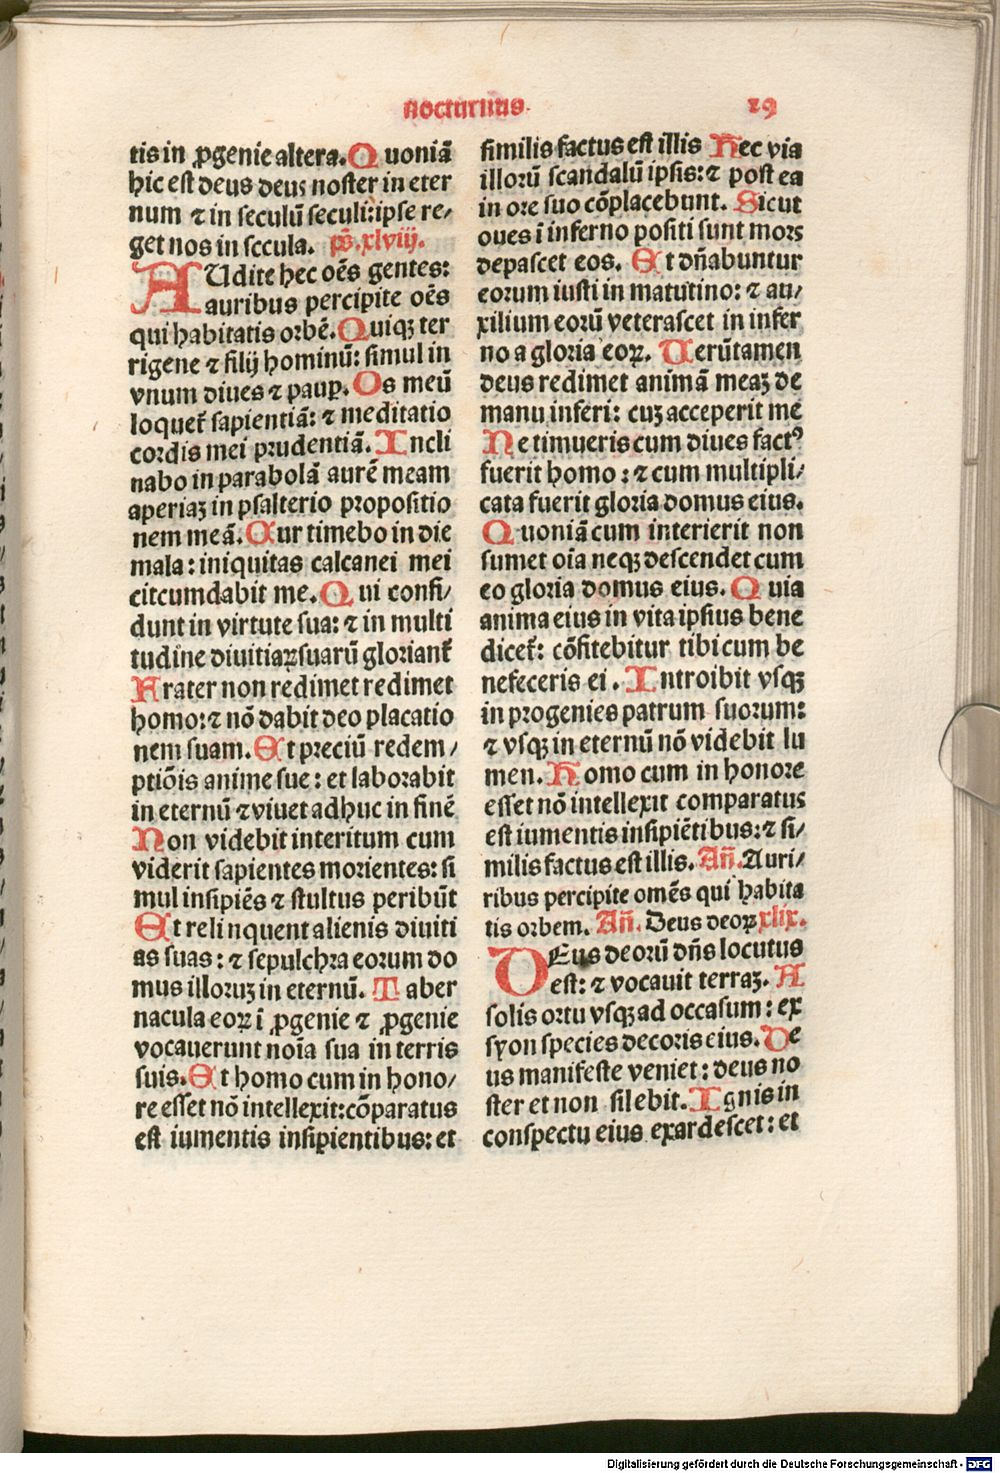 nocturnus.
29
tis in ꝓgenie altera. Quoniã
hic est deus deus noster in eter
num ⁊ in seculũ seculi: ipse re/
get nos in sccula. ps̃. xlviij.
AUdite hec oẽs gentes:
auribus percipite oẽs
qui habitatis orbẽ. Quiqꝫ ter
rigene ⁊ filij hominũ: simul in
vnum diues ⁊ pauꝑ. Os meũ
loquet᷑ sapientiã: ⁊ meditatio
cordis mei prudentiã. Incli
nabo in parabolã aurẽ meam
aperiaꝫ in psalterio propositio
nem meã. Cur timebo in die
mala: iniquitas calcanei mei
citcumdabit me. Qui confi/
dunt in virtute sua: ⁊ in multi
tudine diuitiaꝝ suarũ gloriant᷑
Frater non redimet redimet
homo: ⁊ nõ dabit deo placatio
nem suam. Et preciũ redem/
ptiõis anime sue: et laborabit
in eternũ ⁊ viuet adhuc in finẽ
Non videbit interitum cum
viderit sapientes morientes: si
mul insipiẽs ⁊ stultus peribũt
Et relinquent alienis diuiti
as suas: ⁊ sepulchra eorum do
mus illoruꝫ in eternũ. Taber
nacula eoꝝ ĩ ꝓgenie ⁊ ꝓgenie
vocauerunt noĩa sua in terris
suis. Et homo cum in hono/
re esset nõ intellexit: cõparatus
est iumentis insipientibus: et
similis factus est illis Hec via
illorũ scandalũ ipsis: ⁊ post ea
in ore suo cõplacebunt. Sicut
oues ĩ inferno positi sunt mors
depascet eos. Et dñabuntur
eorum iusti in matutino: ⁊ au/
xilium eorũ veterascet in infer
no a gloria eoꝝ. Uerũtamen
deus redimet animã meaꝫ de
manu inferi: cuꝫ acceperit me
Ne timueris cum diues factꝰ
fuerit homo: ⁊ cum multipli/
cata fuerit gloria domus eius.
Quoniã cum interierit non
sumet oĩa neqꝫ descendet cum
eo gloria domus eius. Quia
anima eius in vita ipsius bene
dicet᷑: cõfitebitur tibi cum be
nefeceris ei. Introibit vsqꝫ
in progenies patrum suorum:
⁊ vsqꝫ in eternũ nõ videbit lu
men. Homo cum in honore
esset nõ intellexit comparatus
est iumentis insipiẽtibus: ⁊ si/
milis factus est illis. Añ. Auri/
ribus percipite omẽs qui habita
tis orbem. Añ. Deus deoꝝ xlix.
DEus deorũ dñs locutus
est: ⁊ vocauit terraꝫ. A
solis ortu vsqꝫ ad occasum: ex
syon species decoris eius. De
us manifeste veniet: deus no
ster et non silebit. Ignis in
conspectu eius exardescet: et
Digitalisierung gefördert durch die Deutsche Forschungsgemeinschaft - DFG